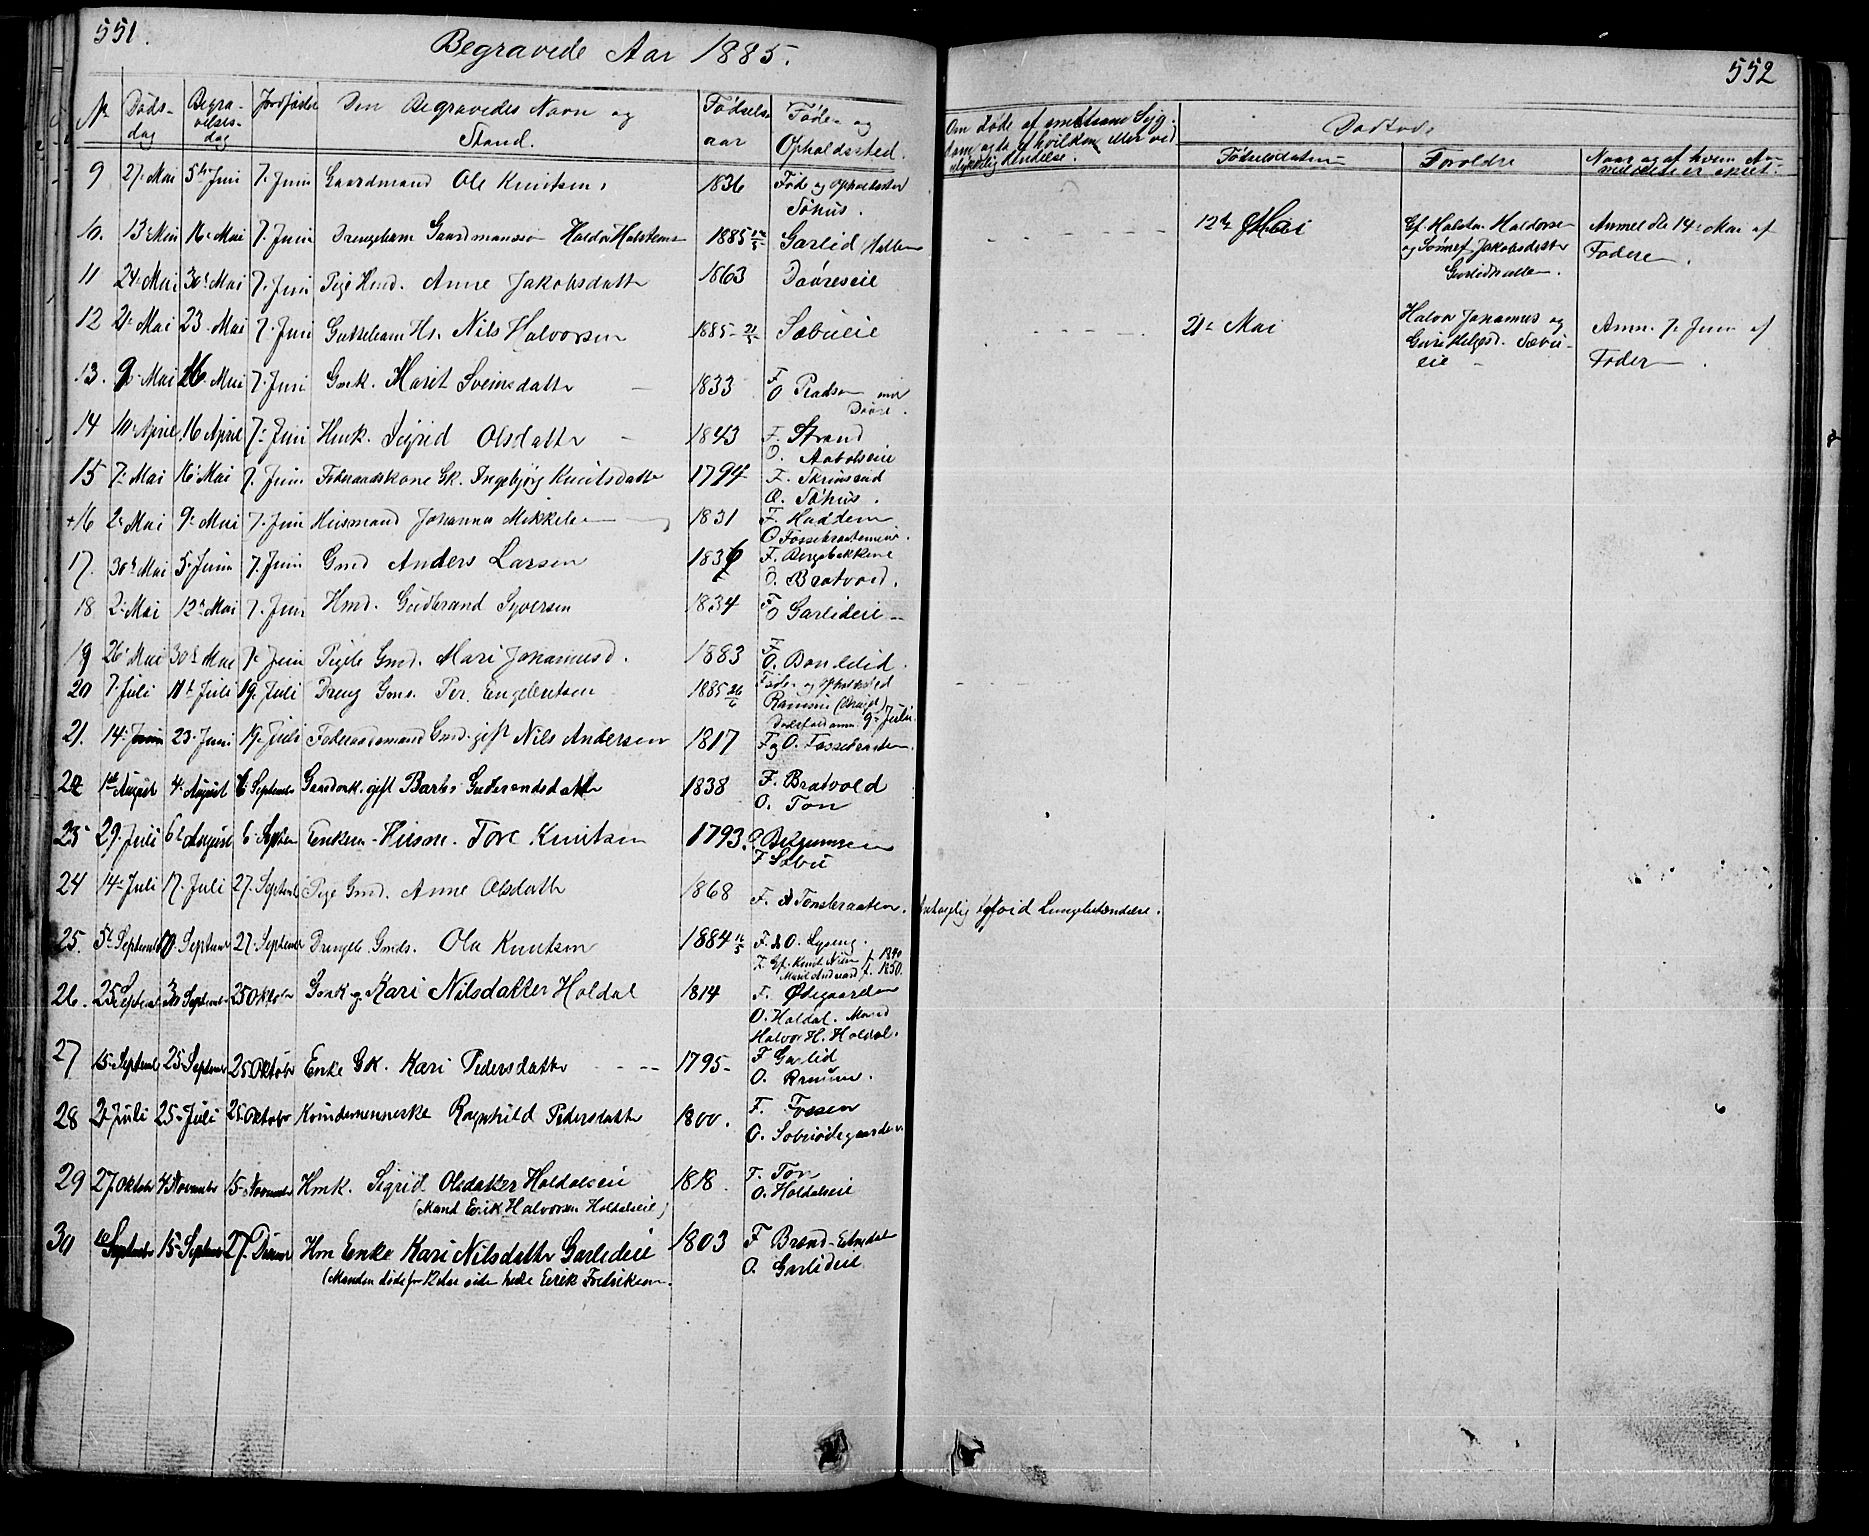 551.
Begravede Aar 1885.
552
No Døds-dag Begra-velses-dag Jordfæstet Den Begravedes Navn og Stand. Fødsels aar Føde- og Opholdssted.
Om døde af smitsom Syg-dom og da af hvilken eller ved ulykkelig Hændelse.
Fødselsdatum Forældre Naar og af hvem An-meldelse er skeet.
9 27. Mai 5te Juni 7. Juni Gaardmand Ole Knutsen 1836 Føde og Opholdssted
Tøhus.
10. 13. Mai 16. Mai 7. Juni Drengebarn Gaardmandssøn Haldor Halstensen 1885 12/5 Garlid Hallen 12te Mai Gf. Halsten Haldorsen Anmeldte 14. Mai af
og Jakobsdatter Fader
Garlidhallen.
11 24. Mai 30. Mai 7. Juni Pige Hmd. Anne Jakobsdatter 1863 Daøreseie
12 21. Mai 23. Mai 7. Juni Guttebarn Hs. Nils Halvorsen 1885 - 21/5 Sæbueie 21. Mai Halvor Johannes og Anm. 7. Juni af
Guri Helgesd. Sæbu-eie Fader.
13. 9. Mai 16. Mai 7. Juni Gmk. Marit Sveinsdatter 1833 F O
14 10. April 16 April 7. Juni Hmk. Sigrid Olsdatter 1843 F. Strand
O. Aabolseie
15 7. Mai 16. Mai 7. Juni Føderaadskone Gk. Ingebjørg Knutsdatter 1794 F. Skrinsrud
O. Tøhus.
+16 2. Mai 9. Mai 7. Juni Husmand Johannes Mikkelsen 1831 F. Haddem
O Fossebraateneie.
17. 30te Mai 5. Juni 7. Juni Gmd Anders Larsen 1836 F. Bergsbakkene
O. Bratvold.
18 2. Mai 12te Mai 7. Juni Hmd. Gudbrand Syversen 1834 F O Garlideie
19 26. Mai 30. Mai 7. Juni Pigeb. Gmd. Mari Johannesd. 1883 F
O. Bonlid.
20 7. Juli 11te Juli 19. Juli Dreng Gmds. Per Engebretsen 1885 26/6 Føde- og Opholdssted
9. Juli.
21. 14. Juni 23. Juni 19. Juli Føderaadsmand Gmd. gift Nils Andersen 1817 F og O. Fossebraaten.
22 1ste August 4. August 6. September Gaardmk. gift Barbo Gudbrandsdatter 1838 F. Bratvold
O. Ton
23 29. Juli 6. August 6. Septem Enkem. Husm. Tore Knutsen 1793. O.
F Sæbu
24 14. Juli 17. Juli 27. Septemb Pige Gmd. Anne Olsdatter 1868 F. O Tonsbraaten. Lungebetændelse.
25. 5. Septemb Septemb 27. September Drengeb. Gmds. Ole Knutsen 1884 F. & O. Lyseng.
F. Gf. Knut Nilsen f. 1840
Marit f. 1850.
26. 25 Septemb 30 September 25 Oktober Gmk g. Kari Nilsdatter Holdal 1814 F. Ødegaarden
O. Holdal. Mand
Halvor H. Holdal.
27 15. Septemb 25 September 25 Oktober Enke Gk. Kari Pedersdatter 1795 F Garlid
O. Rennum.
28 21. Juli 25. Juli 25. Oktober Kvindemenneske Ragnhild Pedersdatter 1800. F. Fossen
O. Sæbuødegaarden.
29 27. Oktober 4. November 15. November Hmk. Sigrid Olsdatter Holdalseie 1818. F. Ton
(Mand Erik Halvorsen Holdalseie) O. Holdalseie
30 10 September 15. September 27. Decemr Hm Enke Kari Nilsdatter Garlideie 1803 F Brend - Etnedal
(Manden døde for 12 Aar siden hedte Eirik Fredriksen. O. Garlideie